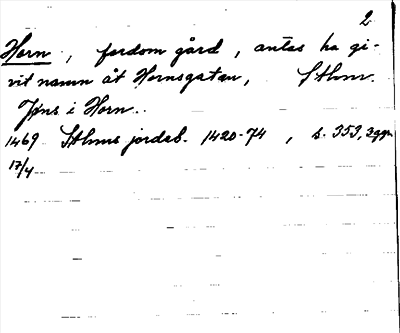 2
Horn, fordom gård, antas ha gi-
vit namn åt Hornsgatan, Sthm.
Jøns i Horn.
1469 Sthms jordab. 1420-74, s. 353, 3 ggr.
17/4